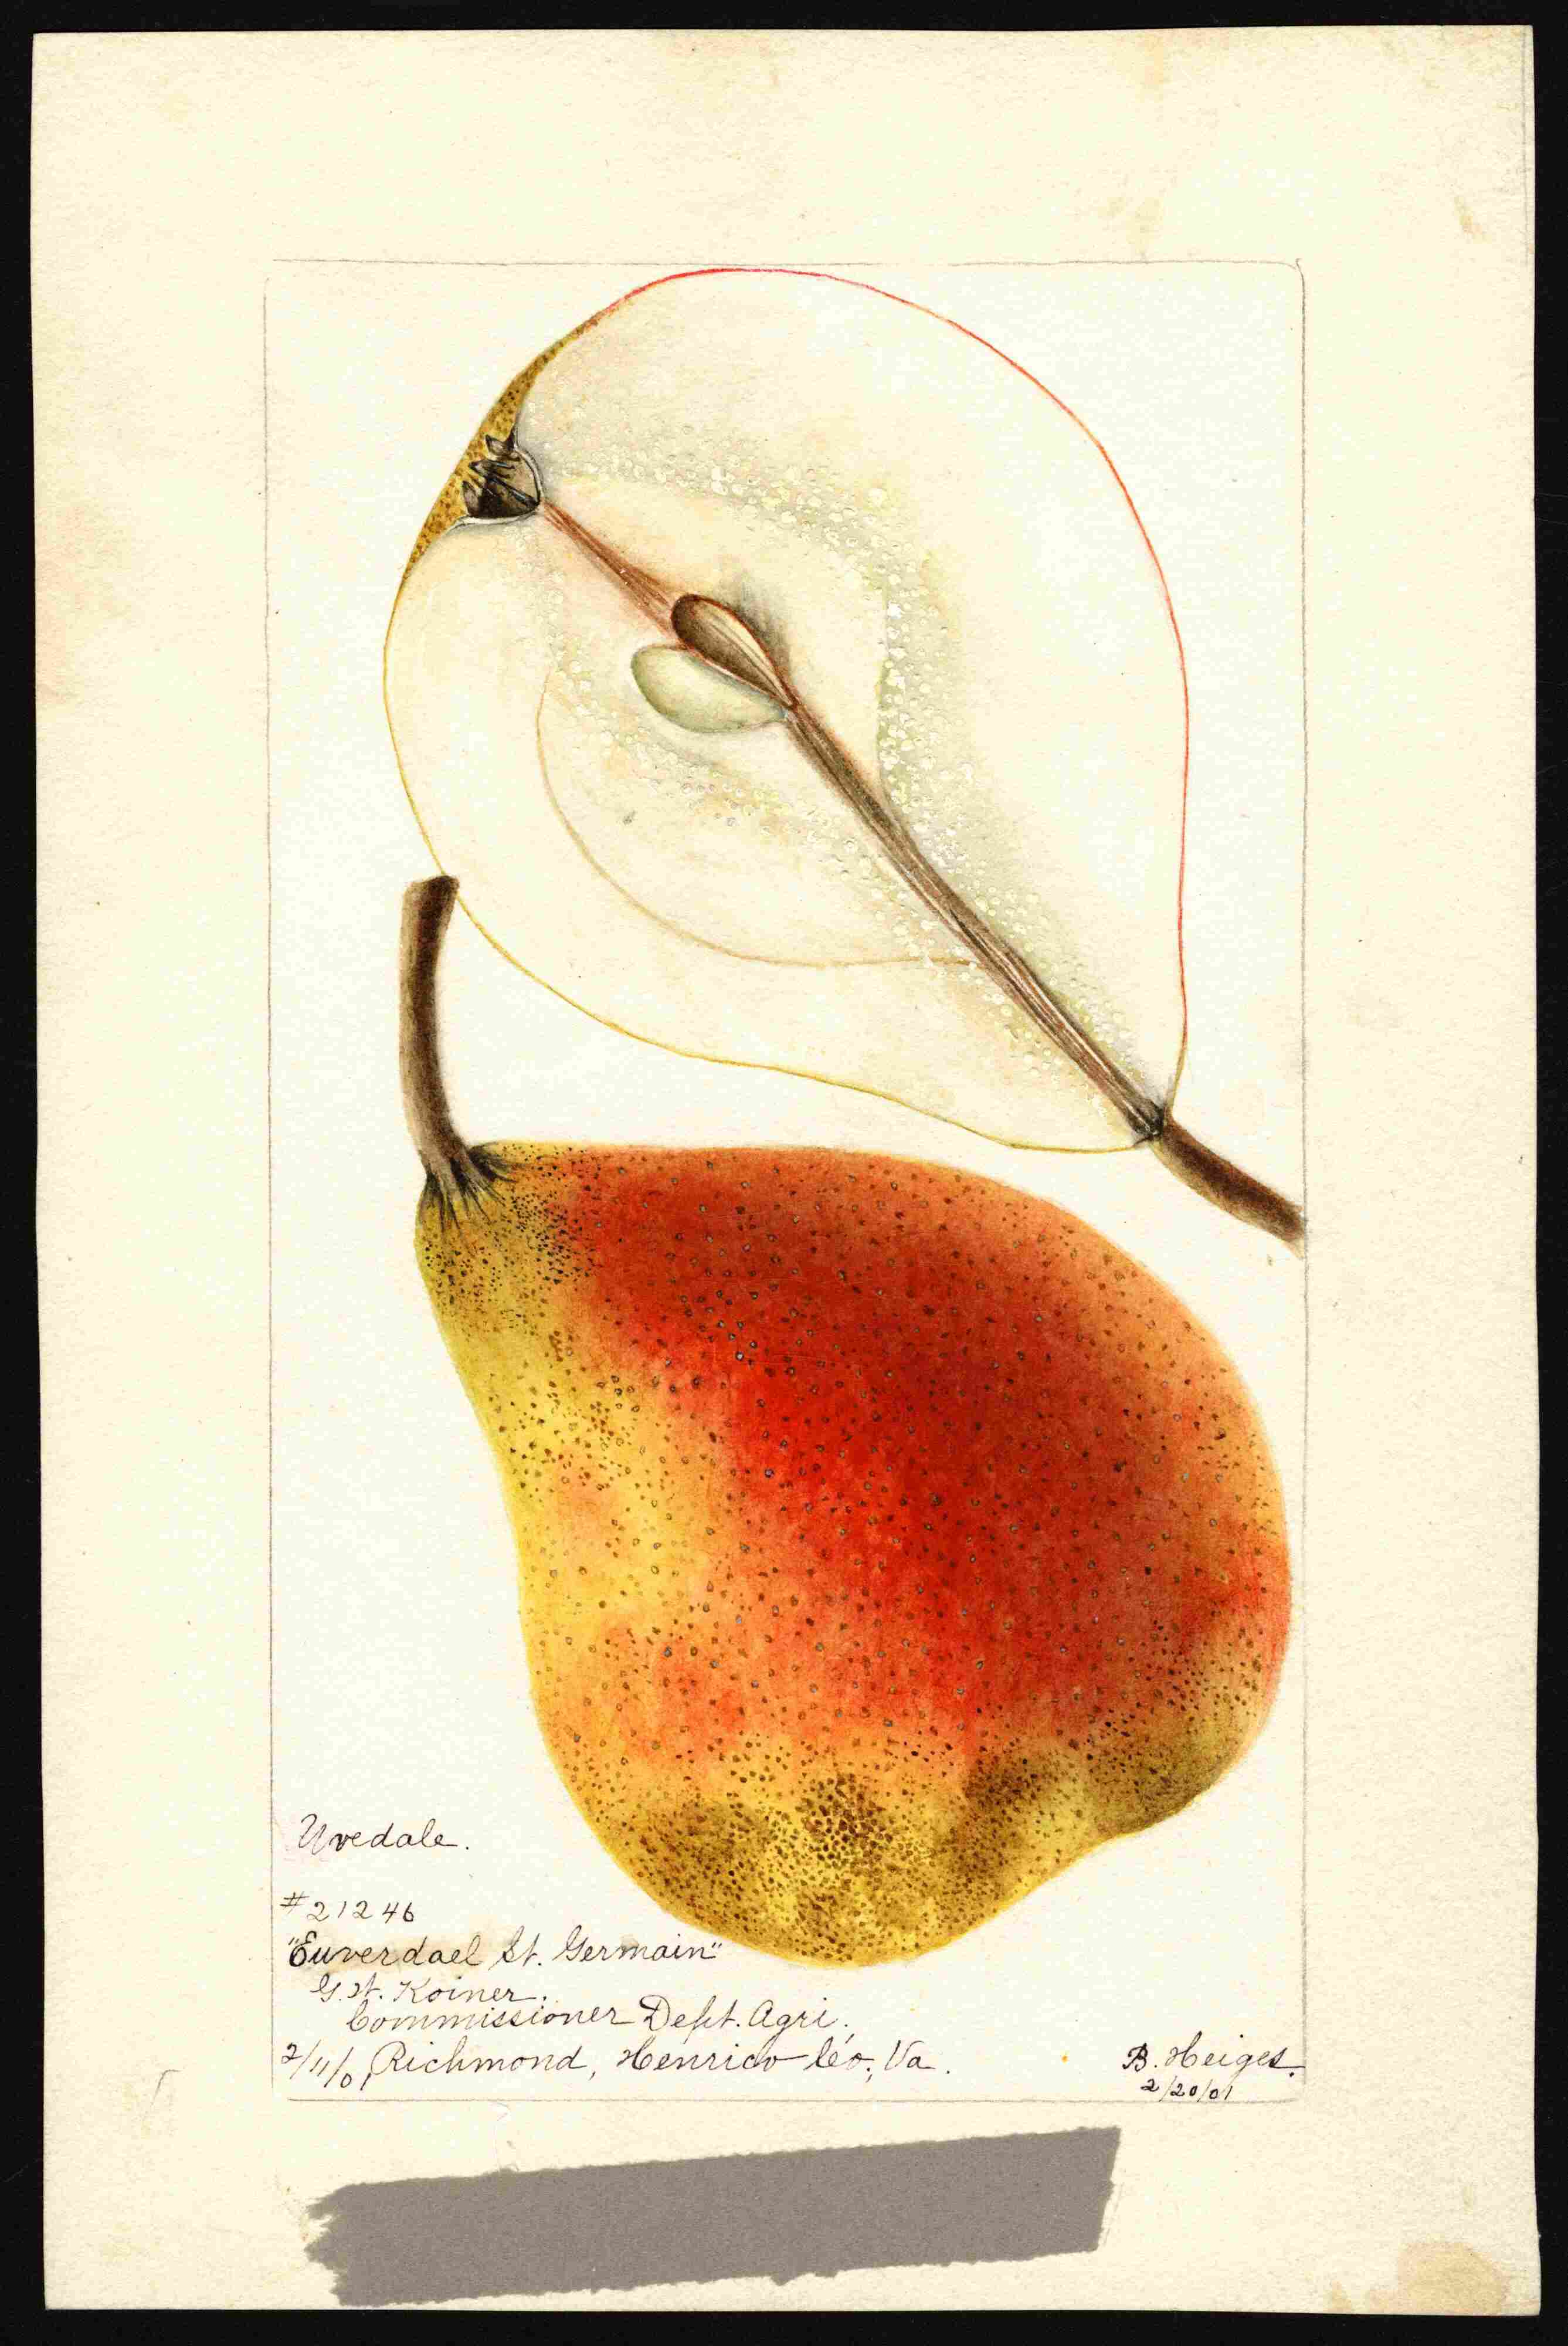 Uvedale.
#21246
"Euverdael St. Germain"
G. W. Koiner.
Commissioner Dept. Agri.
2/11/01 Richmond, Henrico Co., Va.
B. Heiges.
2/20/01